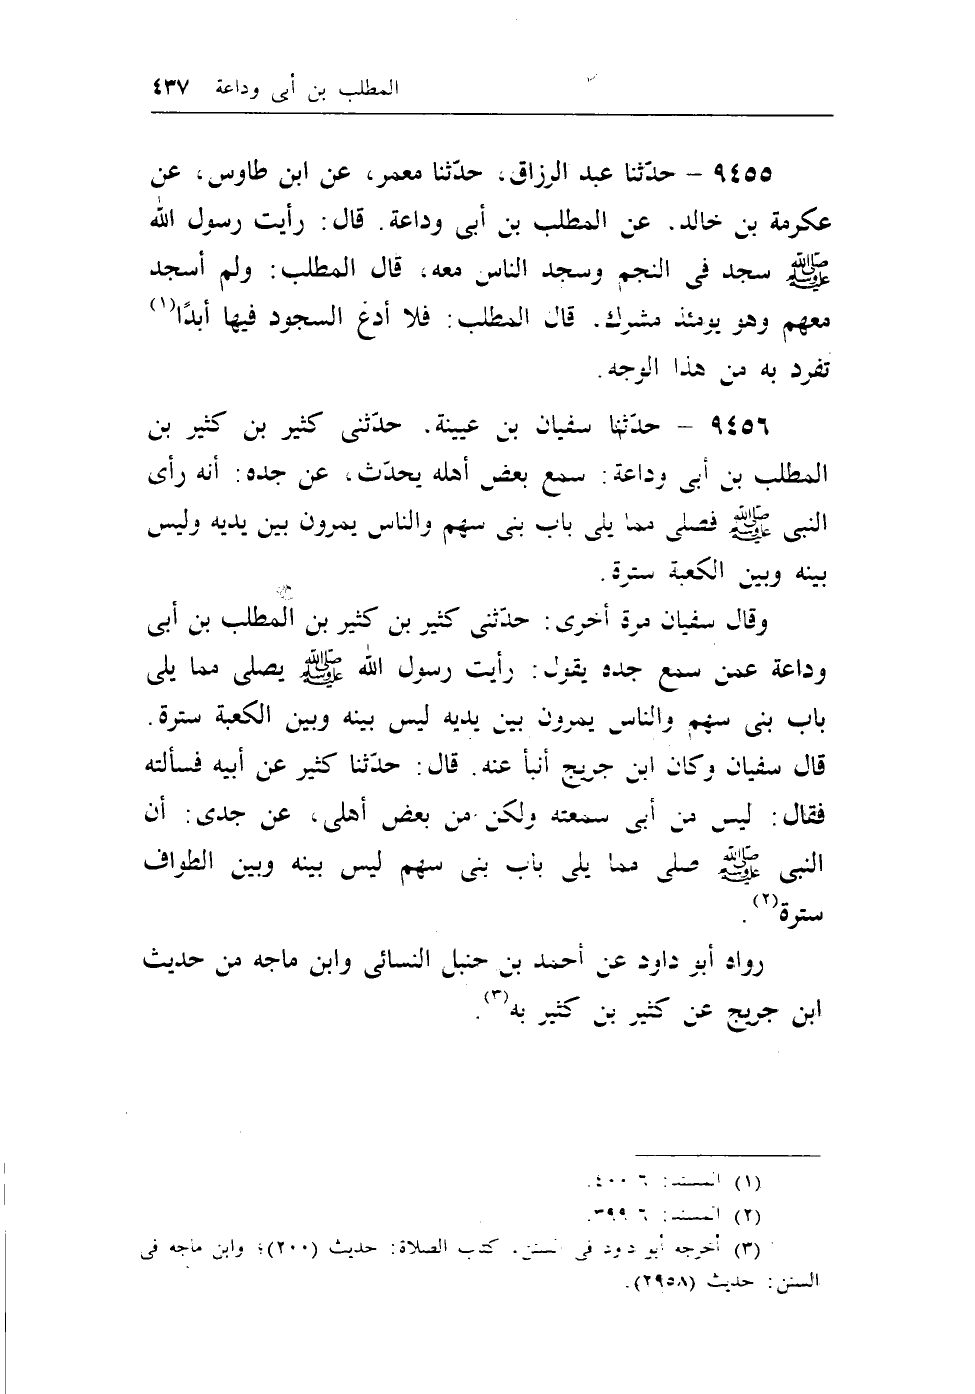 المطلب بن أبى وداعة ٤٣٧
٩٤٥٥ – حدّثنا عبد الرزاق، حدّثنا معمر، عن ابن طاوس، عن
عكرمة بن خالد. عن المطلب بن أبى وداعة. قال: رأيت رسول الله
ﷺ سجد فى النجم وسجد الناس معه، قال المطلب: ولم أسجد
معهم وهو يومئذ مشرك. قال المطلب: فلا أدعُ السجود فيها أبدًا(١)
تفرد به من هذا الوجه.
٩٤٥٦ – حدّثنا سفيان بن عيينة. حدّثنى كثير بن كثير بن
المطلب بن أبى وداعة: سمع بعض أهله يحدّث، عن جده: أنه رأى
النبى ﷺ فصلى مما يلى باب بنى سهم والناس يمرون بين يديه وليس
بينه وبين الكعبة سترة.
وقال سفيان مرة أخرى: حدّثنى كثير بن كثير بن المطلب بن أبى
وداعة عمن سمع جده يقول: رأيت رسول الله ﷺ يصلى مما يلى
باب بنى سهم والناس يمرون بين يديه ليس بينه وبين الكعبة سترة.
قال سفيان وكان ابن جريج أنبأ عنه. قال: حدّثنا كثير عن أبيه فسألته
فقال: ليس من أبى سمعته ولكن من بعض أهلى، عن جدى: أن
النبى ﷺ صلى مما يلى باب بنى سهم ليس بينه وبين الطواف
سترة(٢).
رواه أبو داود عن أحمد بن حنبل النسائى وابن ماجه من حديث
ابن جريج عن كثير بن كثير به(٣).
(١) المسند: ٦ ٤٠٠.
(٢) المسند: ٦ ٣٩٩.
(٣) أخرجه أبو داود فى السنن. كتب الصلاة: حديث (٢٠٠)؛ وابن ماجه فى
السنن: حديث (٢٩٥٨).